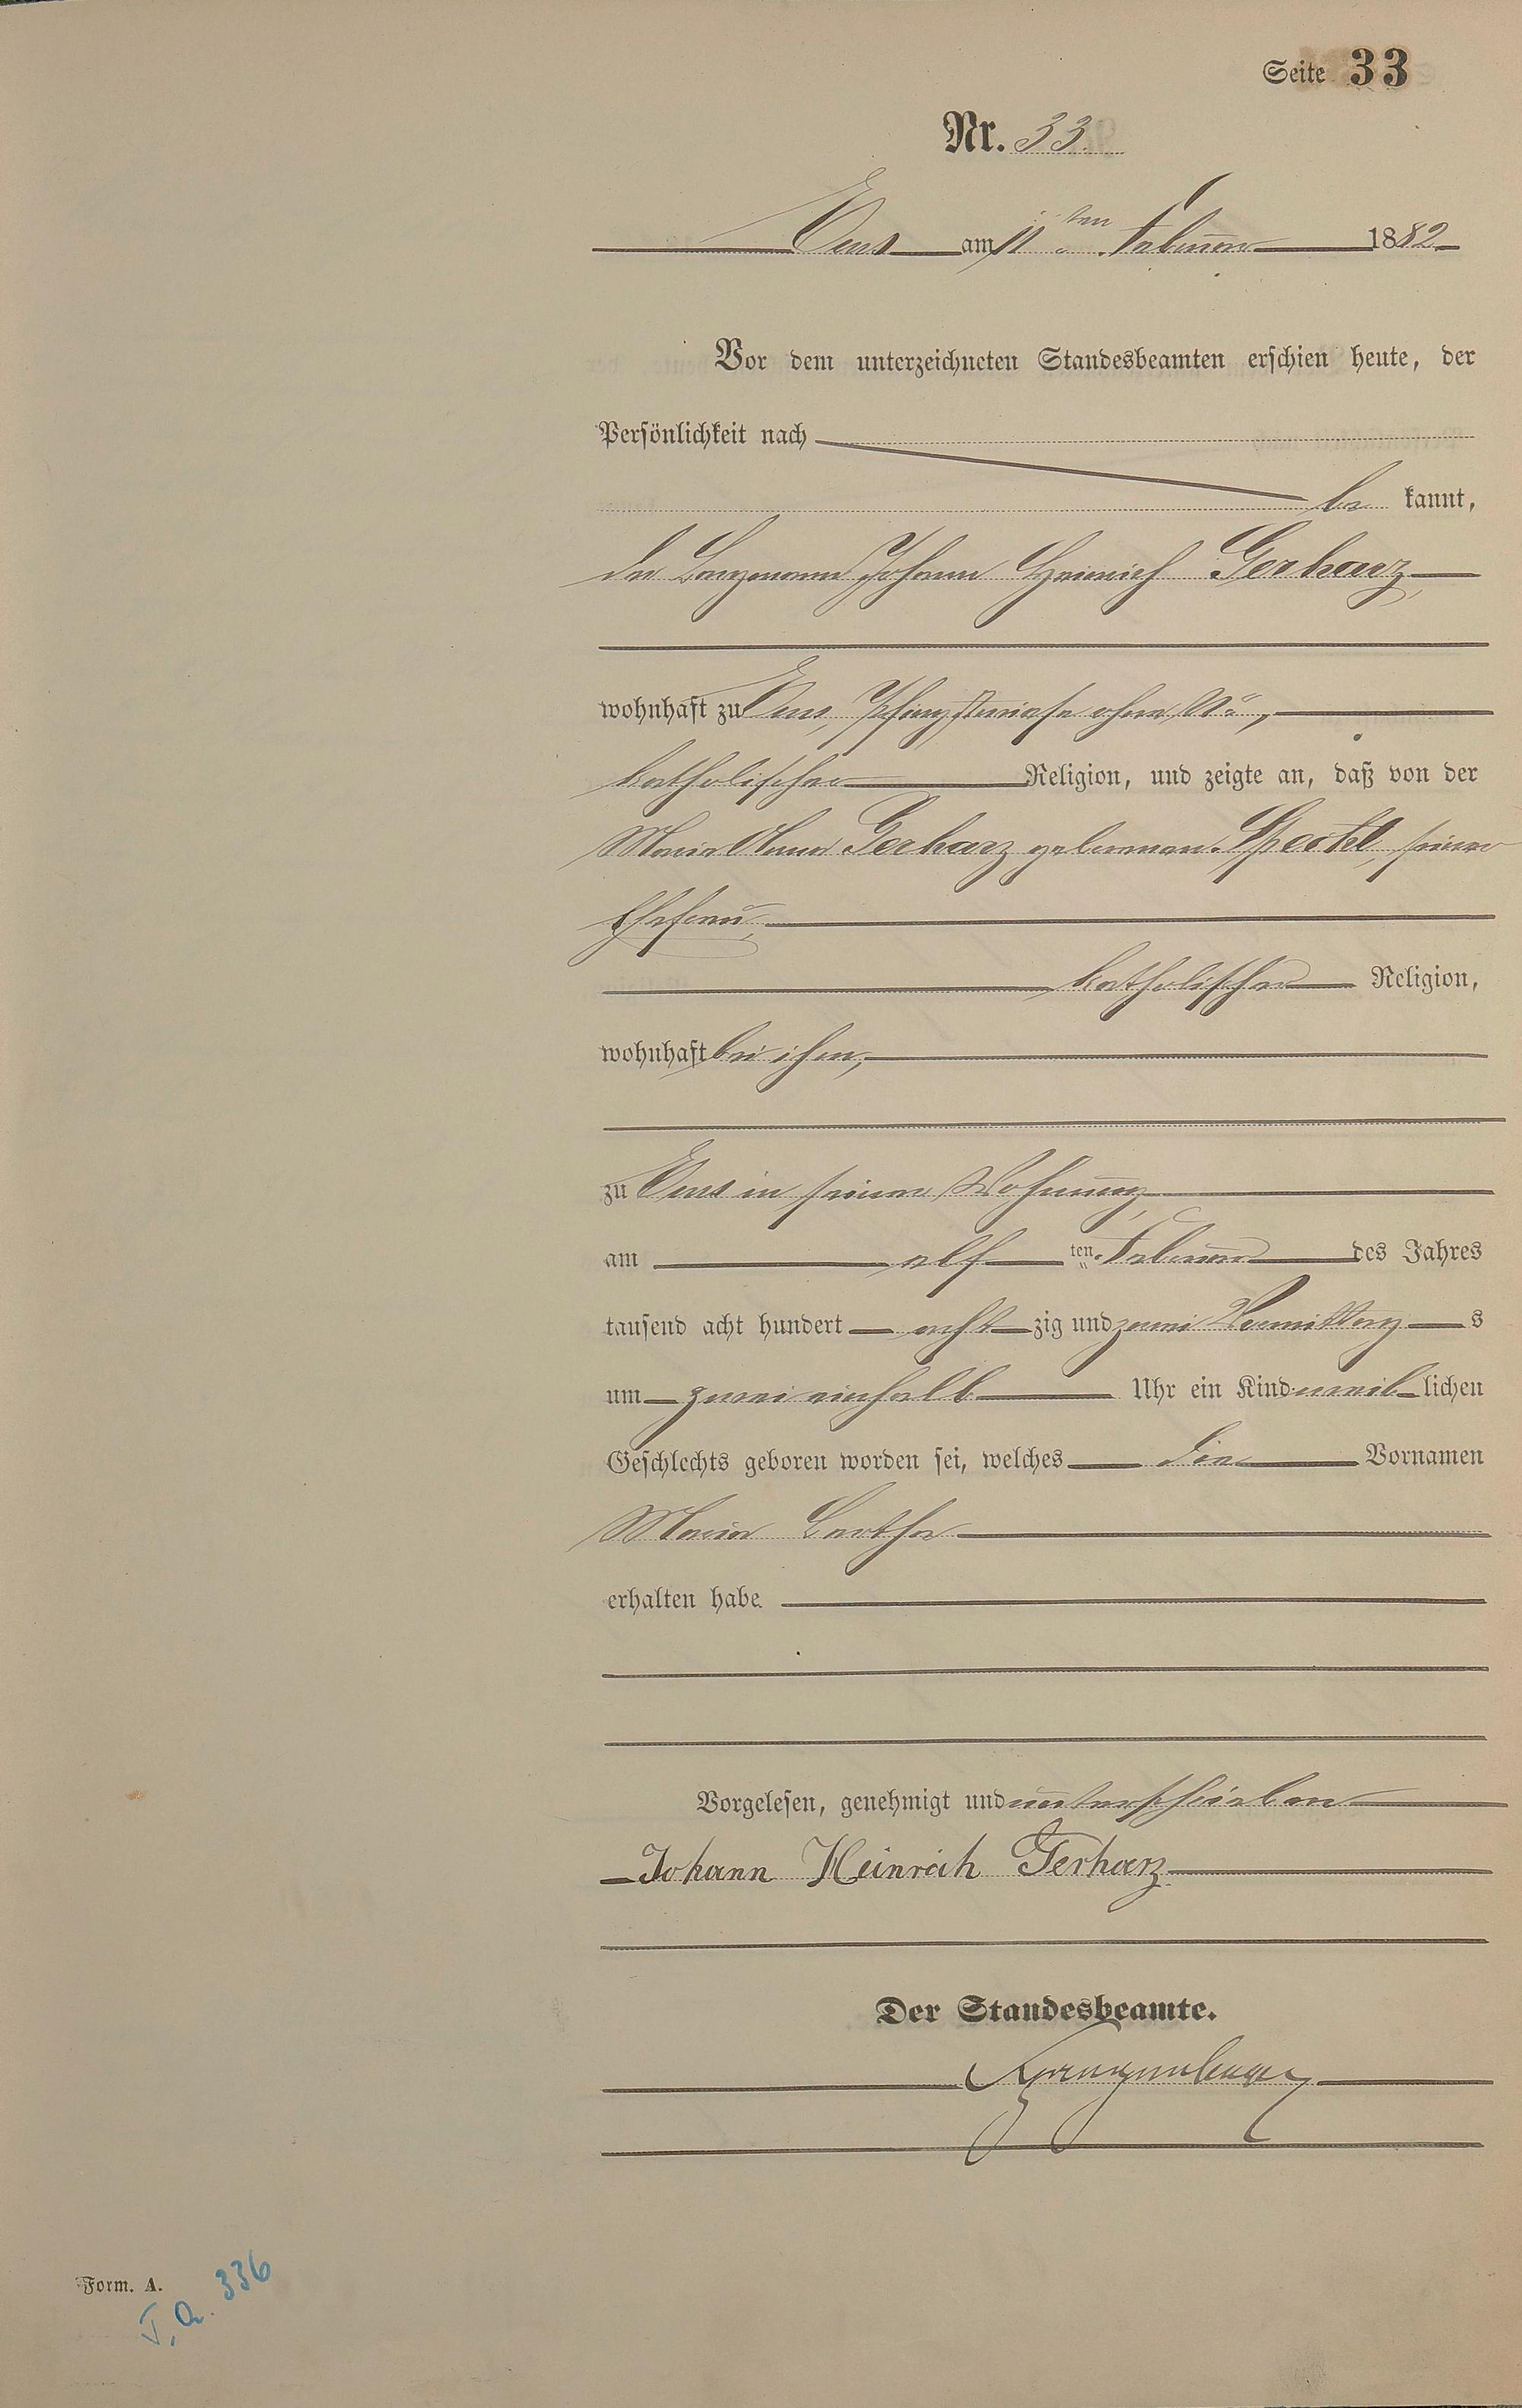 Seite 33
Nr. 33.
Ems am 11 ten Februar 1882
Vor dem unterzeichneten Standesbeamten erschien heute, der
Persönlichkeit nach
be kannt,
der Bergmann Johann Heinrich Gerharz,
wohnhaft zu Ems, ohne No,
katholischer Religion, und zeigte an, daß von der
Maria Anna Gerharz geborenen Specht, seiner
Ehefrau,
katholischer Religion,
wohnhaft bei ihm,
zu Ems in seiner Wohnung,
am elf ten Februar des Jahres
tausend acht hundert acht zig und zwei Vormittag s
um zwei einhalb Uhr ein Kind weib lichen
Geschlechts geboren worden sei, welches die Vornamen
Maria Bertha
erhalten habe
Vorgelesen, genehmigt und unterschrieben
Johann Heinrich Gerharz
Der Standesbeamte.
Form. A.
J. A. 336